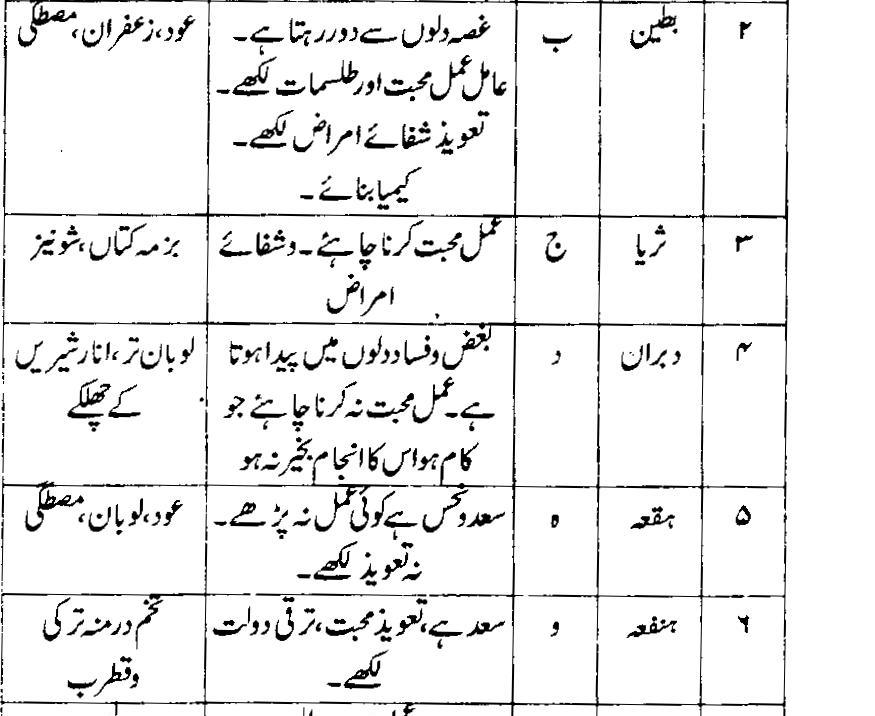 ۲ بطین ب غصہ دلوں سے دور رہتا ہے۔ عود، زعفران، مصطگی
عامل عمل محبت اور طلسمات لکھے۔
تعویذ شفائے امراض لکھے۔
کیمیا بنائے۔
۳ ثریا ج عمل محبت کرنا چاہئے۔ و شفائے بزمہ کتاں، شونیز
امراض
۴ دبران د بغض و فساد دلوں میں پیدا ہوتا لوبان تر، انار شیریں
ہے۔ عمل محبت نہ کرنا چاہئے جو کے چھلکے
کام ہو اس کا انجام بخیر نہ ہو
۵ ہقعہ ہ سعد و نحس ہے کوئی عمل نہ پڑھے۔ عود، لوبان، مصطگی
نہ تعویذ لکھے۔
۶ ہنفعہ و سعد ہے، تعویذ محبت، ترقی دولت تخم درمنہ ترکی
لکھے۔ و قطرب